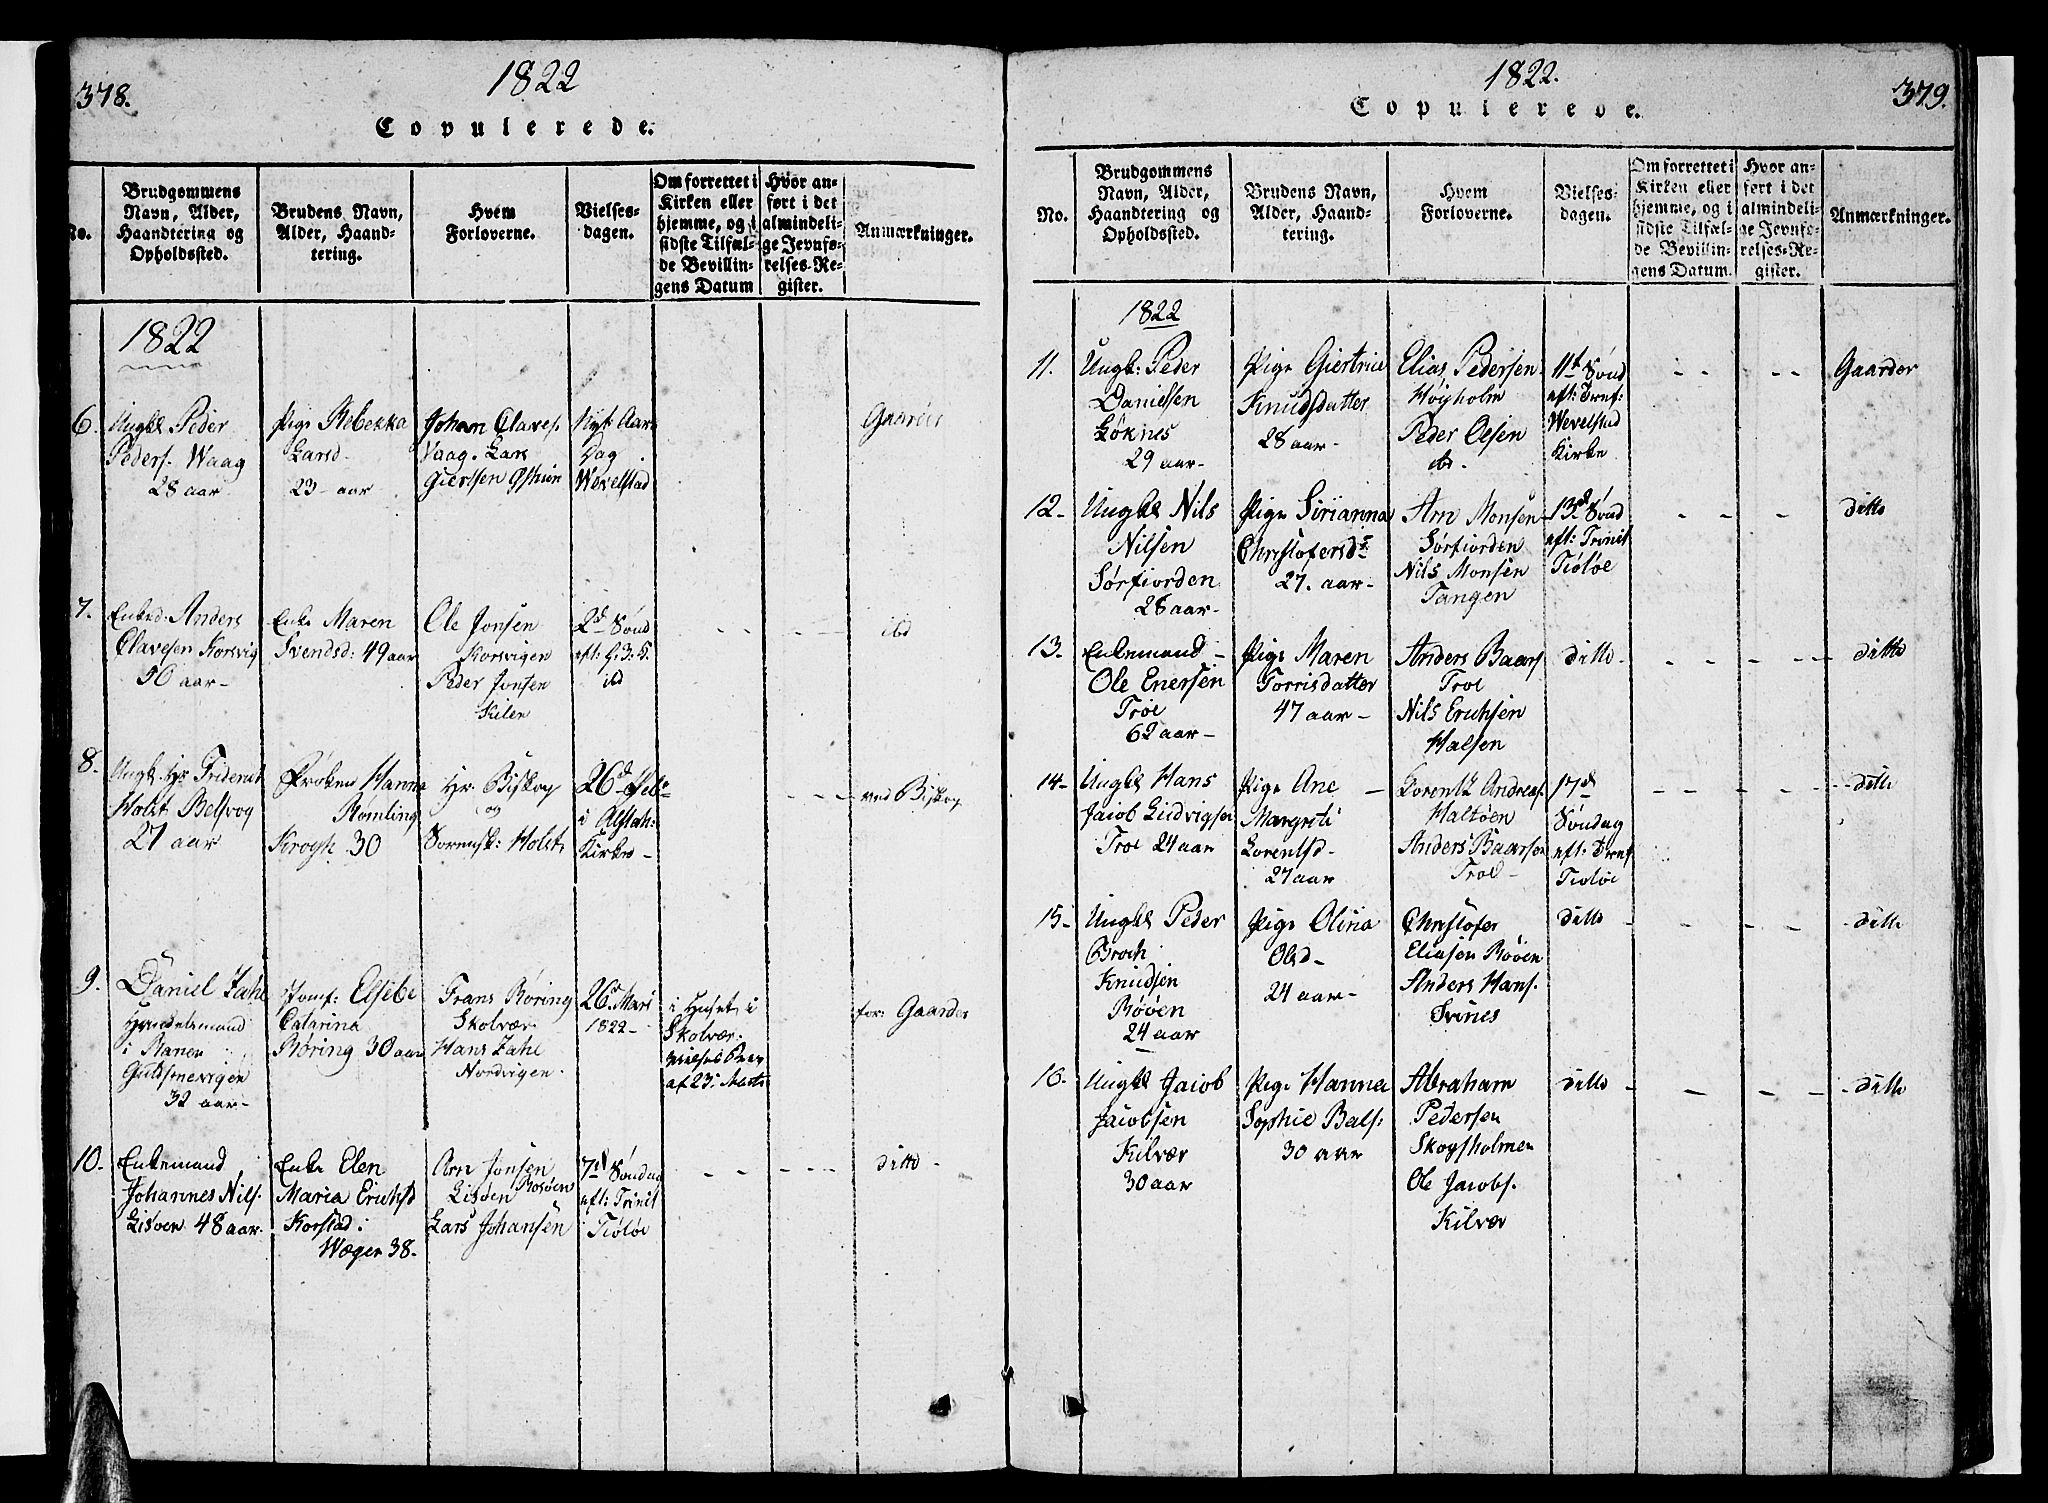 378.
1822
Copulerede.
No.
Brudgommens
Navn, Alder,
Haandtering og
Opholdssted.
Brudens Navn,
Alder, Haand-
tering.
Hvem
Forloverne.
Vielses-
dagen.
Om forrettet i
Kirken eller
hjemme, og i
sidste Tilfæl-
de Bevillin-
gens Datum
Hvor an-
ført i det
almindeli-
ge Jevnfø-
relses-Re-
gister.
Anmærkninger.
1822
6.
Ungk. Peder
Peders. Waag
28 aar
Pige Rebekka
Larsd.
23 aar
Johan Olaves.
Vaag. Lars
Giertsen
Nyt Aars
Dag
Wevelstad
Gaarder
7.
Enkd. Anders
Olavesen Korsvig
50 aar
Enke Maren
Svendsd: 49 aar
Ole Jonsen
Korsvigen
Peder Jonsen
Kilen
2d Sønd
eft: H. 3. K.
ibd
- - - - -
ibd
8.
Ungk. Hr Friderich
Holst Belsvog
27 aar
Frøken Hanna
Rømling
Krogh 30
Hr. Biskop
og
Sorensk: Holst
26d Feb:
i Alstah:
Kirke
- - -
ved Biskop
9.
Daniel Zahl
Handelsmand
i Ranen
Guldsmevigen
32 aar
Jomf: Elsebe
Catarina
Røring 30 aar
Frans Røring
Skolvær
Hans Zahl
Nordvigen.
26d Mars
1822
i Huset i
Skolvær.
af 23: Marts
for: Gaarder
10.
Enkemand
Johannes Nils.
Lisøen 48 aar.
Enke Elen
Maria Erichsd
Korstad i
Wægen 38.
Arn Jonsen
Lisøen Rosøen
Lars Johansen
7d Søndag
eft: Trinit
i Tiøløe
- - - - -
ditto
1822.
379.
Copulerede.
No.
Brudgommens
Navn, Alder,
Haandtering og
Opholdssted.
Brudens Navn,
Alder, Haand-
tering.
Hvem
Forloverne.
Vielses-
dagen.
Om forrettet i
Kirken eller
hjemme, og i
sidste Tilfæl-
de Bevillin-
gens Datum.
Hvor an-
ført i det
almindeli-
ge Jevnfø-
relses-Re-
gister.
Anmærkninger.
1822
11.
Ungk: Peder
Danielsen
Løknes
29 aar
Pige Giertrue
Knudsdatter
28 aar
Elias Pedersen
Høyholm
Peder Olsen
ibd.
11t Sønd
eft: Trnf:
Wevelstad
Kirke
- - - -
Gaarder
12
Ungkl Nils
Nilsen
Sørfiorden
28 aar
Pige Sirianna
Christofersd:
27. aar
Arn Monsen
Sørfiorden
Nils Monsen
Tangen
13d Sønd
eft: Trinit
Tiøløe
- - -
ditto
13.
Enkemand
Ole Enersen
Troe
62 aar
Pige Maren
Torrisdatter
47 aar
Anders Baars
Troe
Nils Erichsen
Halsen
ditto
- - - - -
ditto
14
Ungkl Hans
Jacob Ludvigsen
Troe 24 aar
Pige Ane
Margrete
Lorentsd
27 aar
Lorentz Andreas.
Haltøen
Anders Baarsen
Troe
17d
Søndag
eft: Trnf
Tiøløe
- - - -
ditto
15
Ungkl Peder
Broch
Knudsen
Røøen
24 aar
Pige Olina
Olsd
24 aar
Christofer
Eliasen Røøen
Anders Hans.
Svines
ditto
- - - -
ditto
16
Ungkl Jacob
Jacobsen
Kilvær
30 aar
Pige Hanna
Sophie Bals:
30 aar
Abraham
Pedersen
Skogsholmen
Ole Jacobs.
Kilvær
ditto
- - - -
ditto